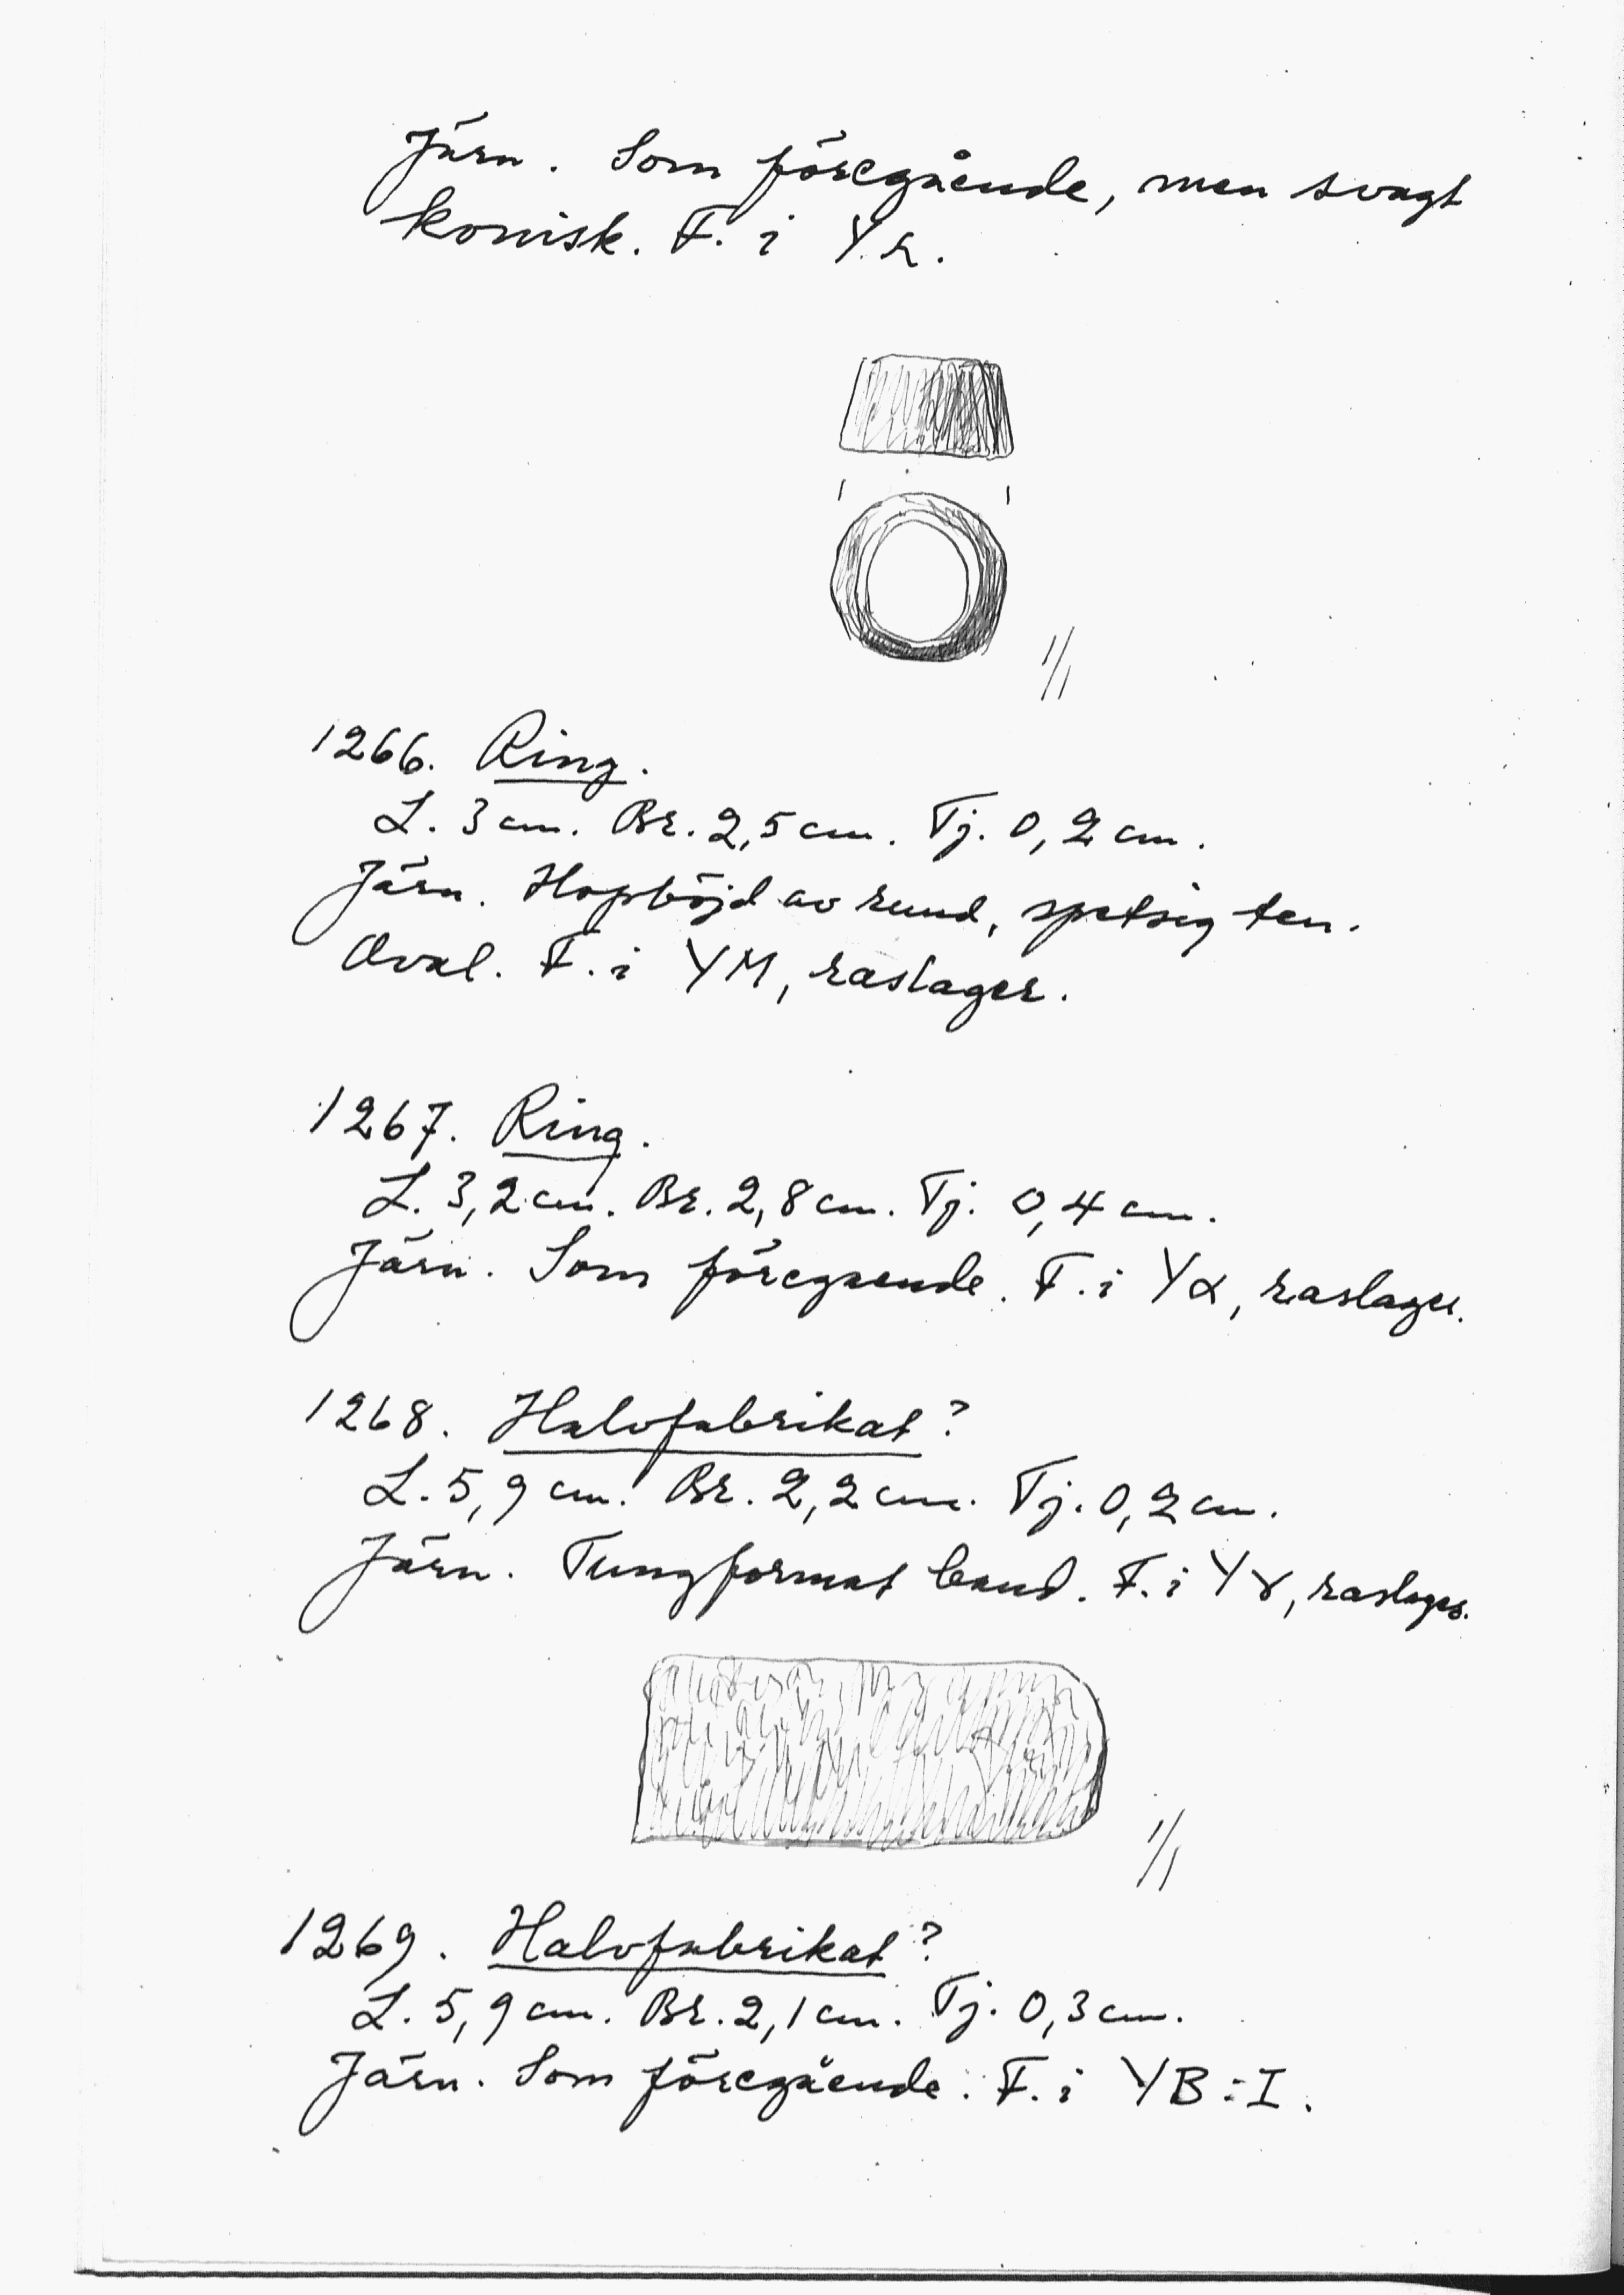 Järn. Som föregående, men svagt
konisk. F. i Yr.
1/1
1266. Ring.
L. 3 cm. Br. 2,5 cm. Tj. 0,2 cm.
Järn. Hopböjd av rund, spetsig ten.
Oval. F. i YM, raslager.
1267. Ring.
L. 3,2 cm. Br. 2,8 cm. Tj. 0,4 cm.
Järn. Som föregaende. F. i Yα, raslager.
1268. Halvfabrikat?
L. 5,9 cm. Br. 2,2 cm. Tj. 0,2 cm.
Järn. Tungformat band. F. i Yγ, raslager.
1/1
1269. Halvfabrikat?
L. 5,9 cm. Br. 2,1 cm. Tj. 0,3 cm.
Järn. Som föregående. F. i YB:I.